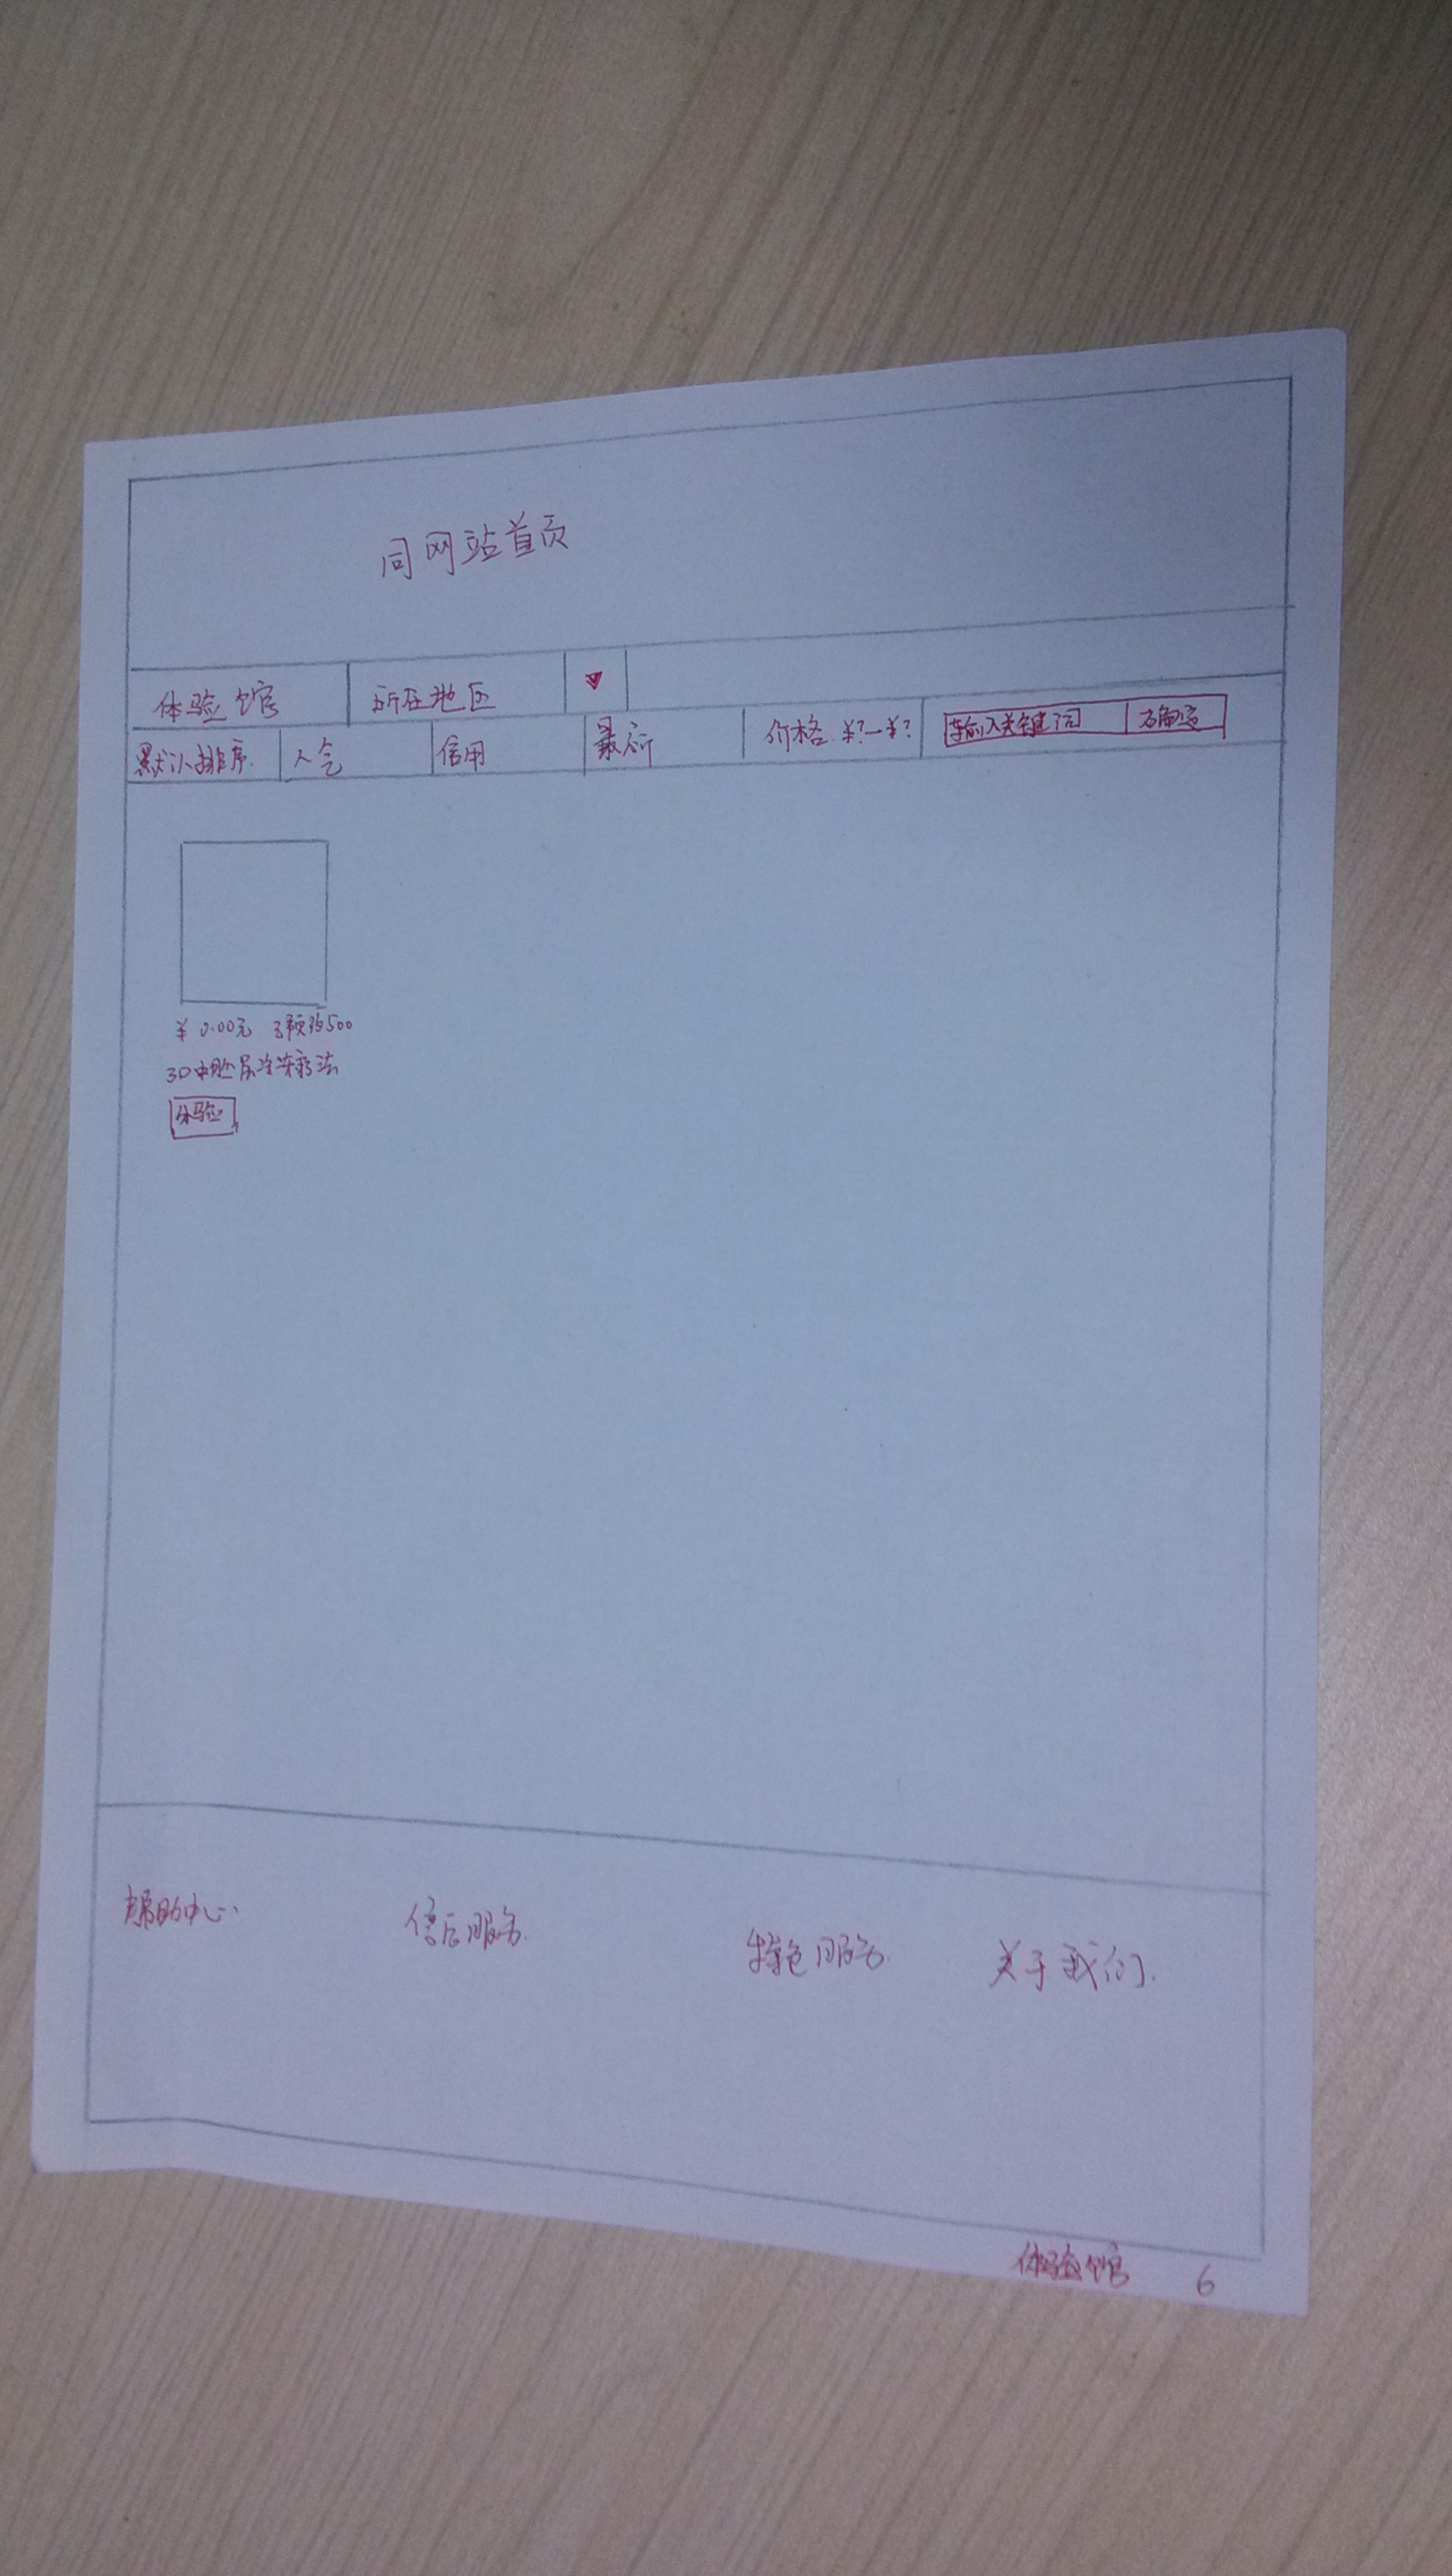 同网站首页
体验馆 所在地区
默认排序 人气 信用 最新 价格 ¥?—¥? 输入关键词 确定
¥ 0.00元 已预约500
3D中胚层冷冻疗法
体验
帮助中心
售后服务
特色服务
关于我们
体验馆 6